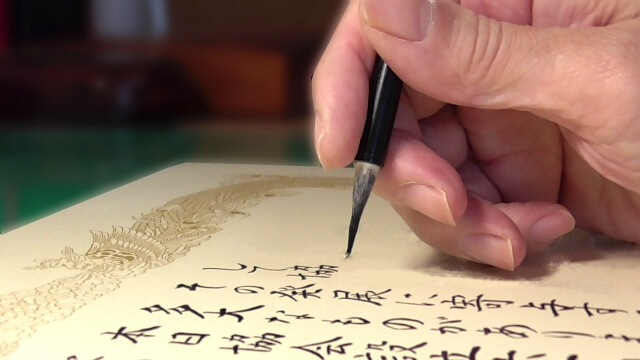 して協
その発展に寄与す
多大なものがありま
本日協会設立